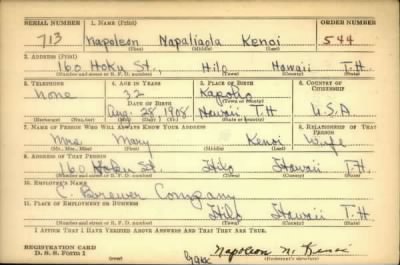 SERIAL NUMBER 1. NAME (Print) ORDER NUMBER
713 Napoleon Napaliaola Kenoi 544
(First) (Middle) (Last)
2. ADDRESS (Print)
160 Hoku St., Hilo Hawaii T.H.
(Number and street or R. F. D. number) (Town) (County) (State)
3. TELEPHONE 4. AGE IN YEARS 5. PLACE OF BIRTH 6. COUNTRY OF CITIZENSHIP
None 32 Kapoho
DATE OF BIRTH (Town or county)
Aug. 28 1908 Hawaii T.H. U.S.A
(Exchange) (No.) (Mo.) (Day) (Yr.) (State or country)
7. NAME OF PERSON WHO WILL ALWAYS KNOW YOUR ADDRESS 8. RELATIONSHIP OF THAT PERSON
Mrs. Mary Kenoi Wife
(Mr., Mrs., Miss) (First) (Middle) (Last)
9. ADDRESS OF THAT PERSON
160 Hoku St. Hilo Hawaii T.H.
(Number and street or R. F. D. number) (Town) (County) (State)
10. EMPLOYER'S NAME
C. Brewer Company
11. PLACE OF EMPLOYMENT OR BUSINESS
Hilo Hawaii T.H.
(Number and street or R. F. D. number) (Town) (County) (State)
I AFFIRM THAT I HAVE VERIFIED ABOVE ANSWERS AND THAT THEY ARE TRUE.
REGISTRATION CARD
D. S. S. Form 1 (over) Napoleon N. Kenoi
(Registrant's signature)